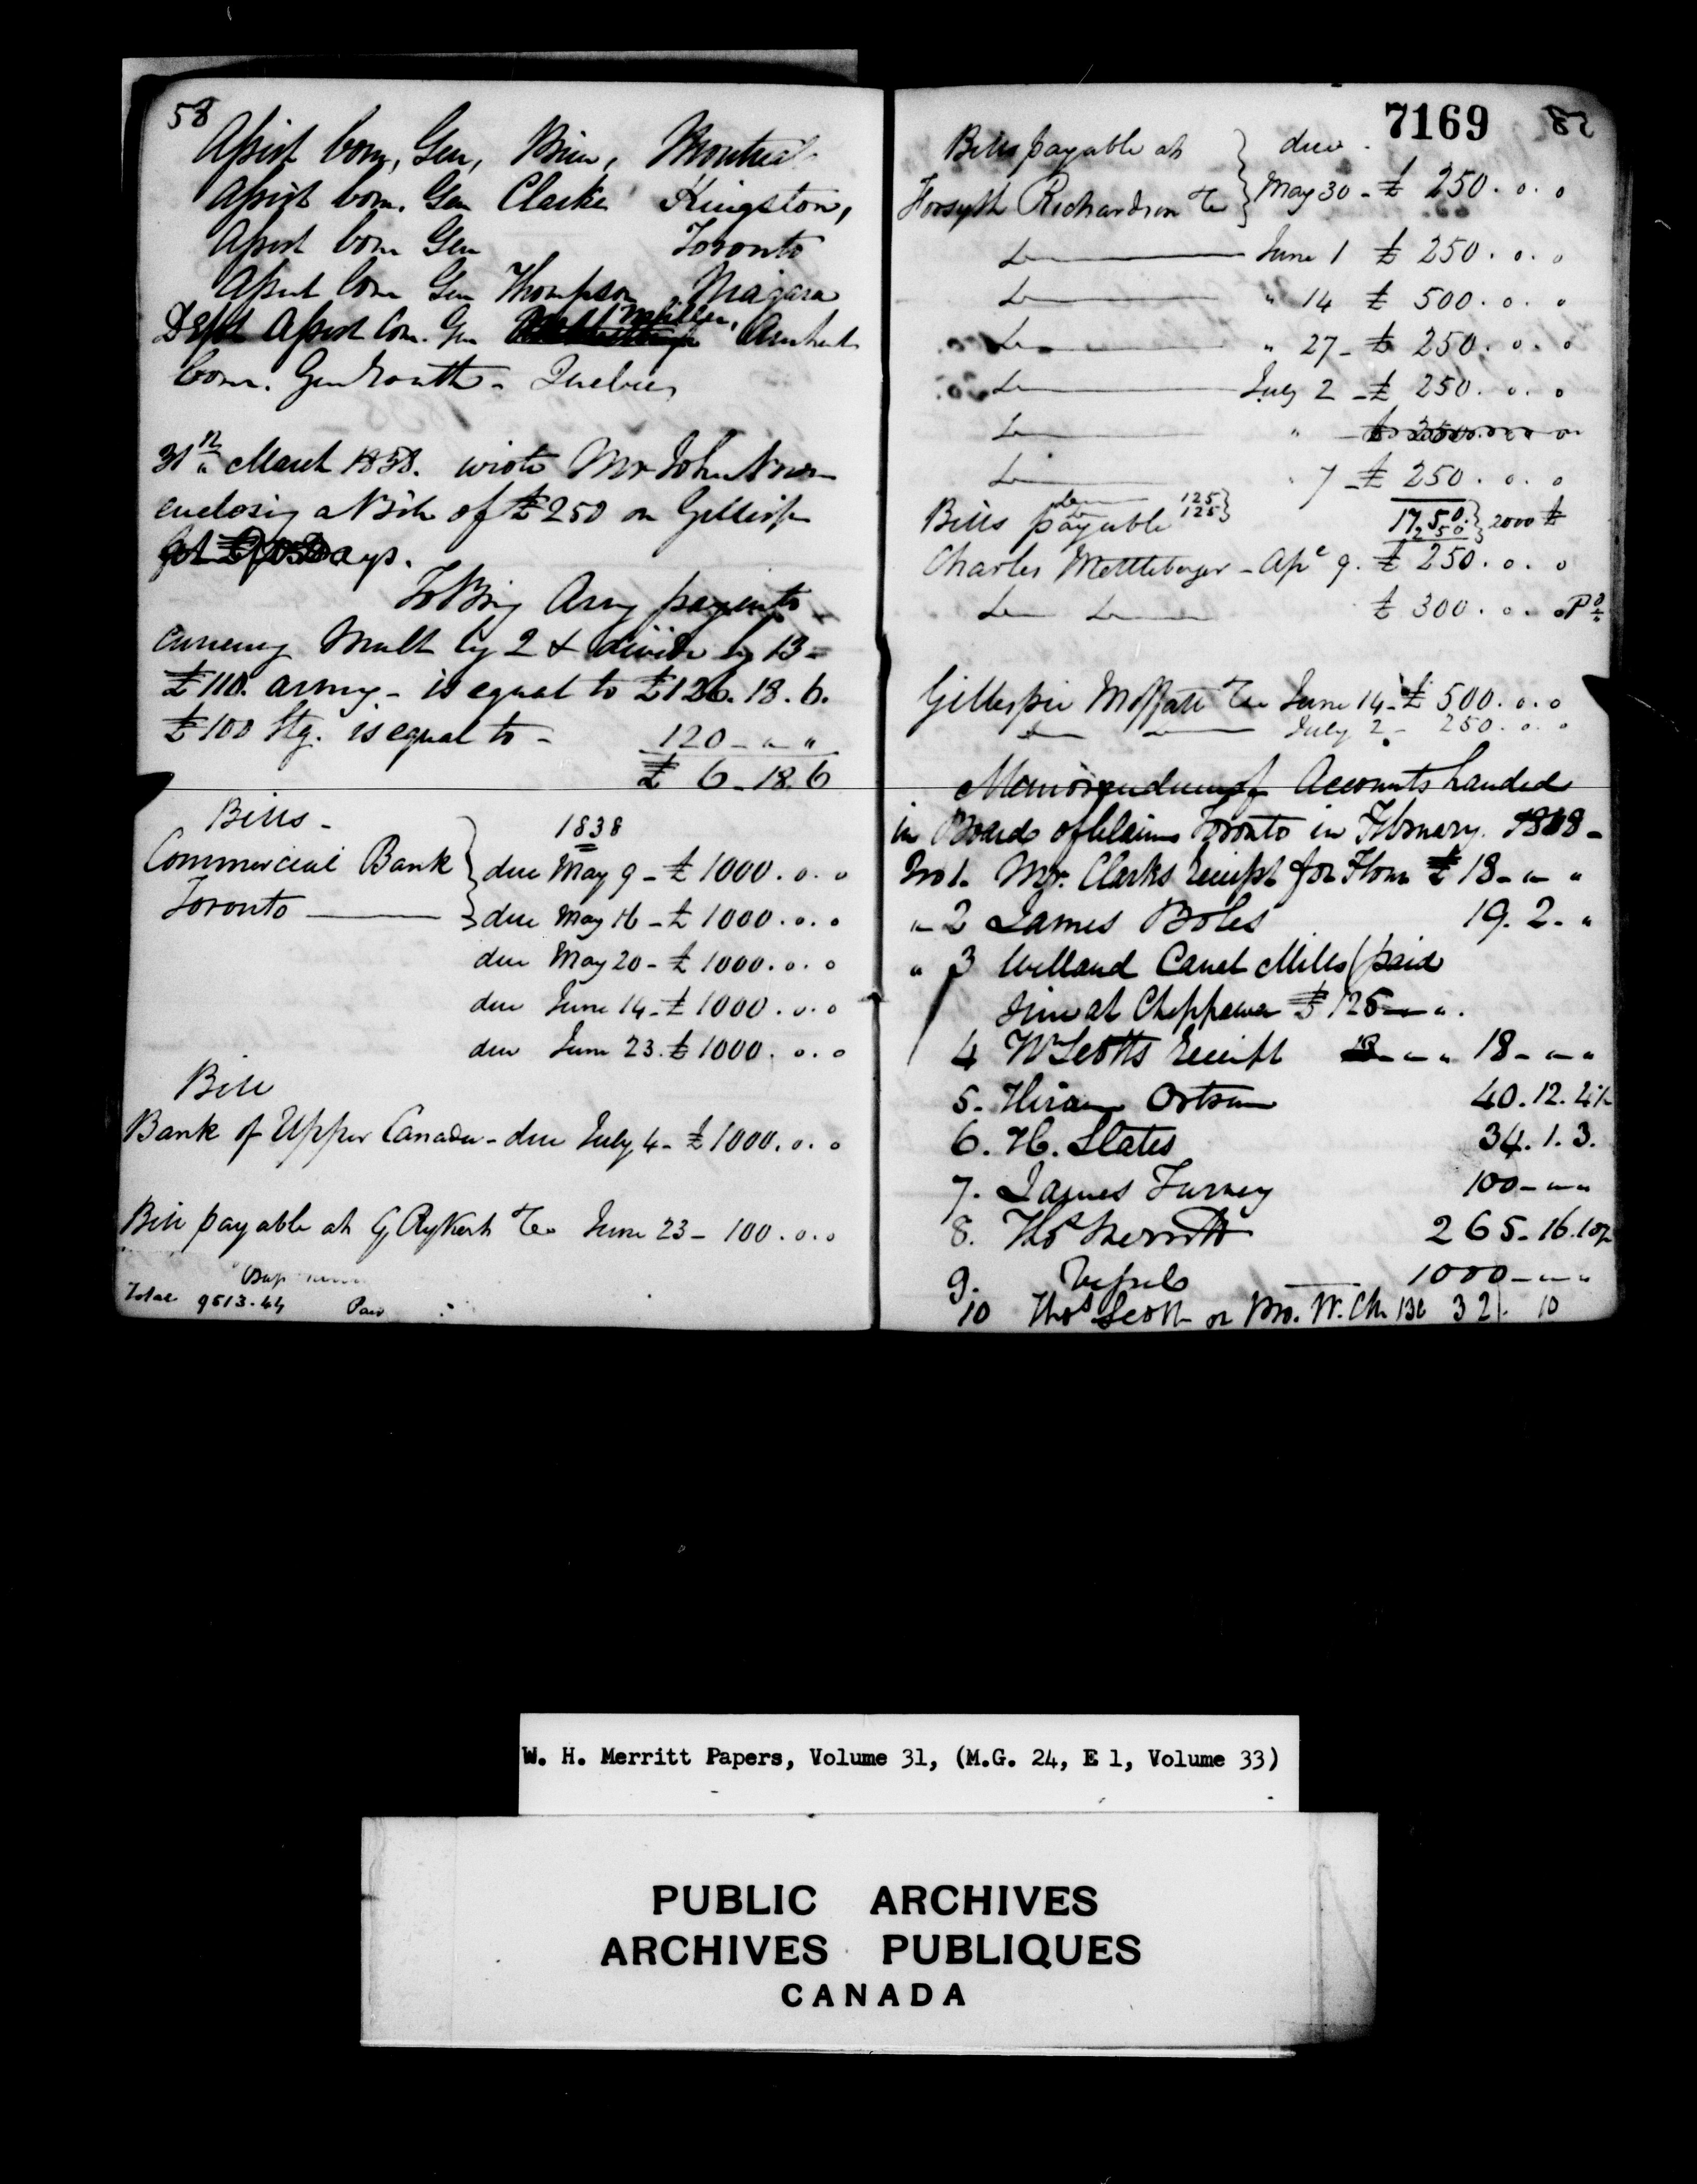 58
Assist Com, Gen, Price, Montreal
Assist Com. Gen Clarke Kingston,
Assist Com Gen Toronto
Assist Com Gen Thompson Niagara
Dept Assist Com. Gen Miller,
Com. Gen Routh - Quebec
31st March 1838. wrote Mr John
enclosing a Bill of £250 on Gillespie
days.
To Bring Army payents
currency Mult by 2 & divide by 13 =
£110. army - is equal to £126.18.6.
£100 Stg. is equal to - 120 - " "
£ 6 - 18.6
Bills -
1838
Commercial Bank } due May 9 - £1000.0.0
Toronto } due May 16 - £1000.0.0
due May 20 - £1000.0.0
due June 14 - £1000.0.0
due June 23. £1000.0.0
Bill
Bank of Upper Canada - due July 4 - £1000.0.0
Bill payable at G Rykert & Co June 23 - 100.0.0
Total 9513.44 Paid
7169
Bills payable at } due
Forsyth Richardson & Co } May 30 - £ 250.0.0
Do June 1 £ 250.0.0
Do " 14 £ 500.0.0
Do " 27 - £ 250.0.0
Do July 2 - £ 250.0.0
Do "
Do " 7 - £ 250.0.0
Do 125 }
Bills payable 125 } 1750 } 2000 £
250
Charles Mettleberger - Apl 9. £ 250.0.0
Do Do £ 300.0.0 Pd
Gillespie Moffatt & Co June 14 - £ 500.0.0
Do July 2 - 250.0.0
Memorandum of Accounts handed
in Board of Claims Toronto in February 1838 -
No 1. Mr. Clarks receipt for Flour £ 18 - " "
" 2 James Boles 19.2. "
" 3 Welland Canal Mills (paid
Sim at Chippawa £ 125 - " .
4 W Scotts receipt 18 - " " 18 - " "
5. Hiram 40.12.4½
6. H. Slates 34.1.3.
7. James Turney 100 - " "
8. Thos Merritt 265 - 16.10½
9. Vessels 1000 - " "
10 Thos Scott 32 10
W. H. Merritt Papers, Volume 31, (M.G. 24, E 1, Volume 33)
PUBLIC ARCHIVES
ARCHIVES PUBLIQUES
CANADA